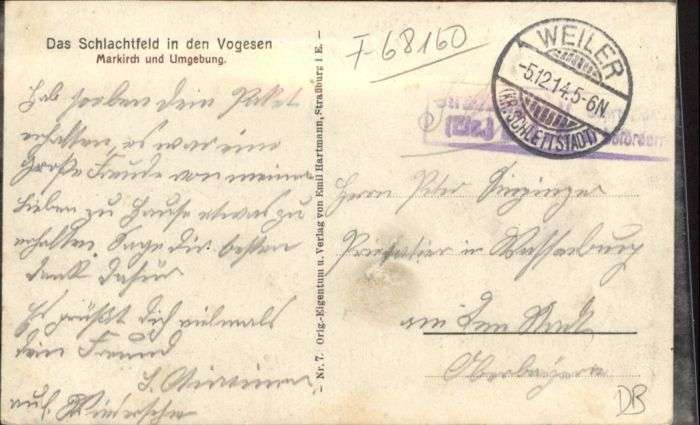 Das Schlachtfeld in den Vogesen
Markirch und Umgebung.
F-68160
WEILER
-5.12.14.5-6N
(KR. SCHLETTSTADT)
Hab soeben dein Paket
erhalten, es war eine
große Freude von meinen
lieben zu Hause etwas zu
erhalten. Sage dir besten
dank dafür
Es grüßt dich vielmals
dein Freund
auf Wiedersehn
Nr. 7. Orig.-Eigentum u. Verlag von Emil Hartmann, Straßburg i E.
Herrn Peter
Privatier in Wasserburg
am
Oberbayern
DB